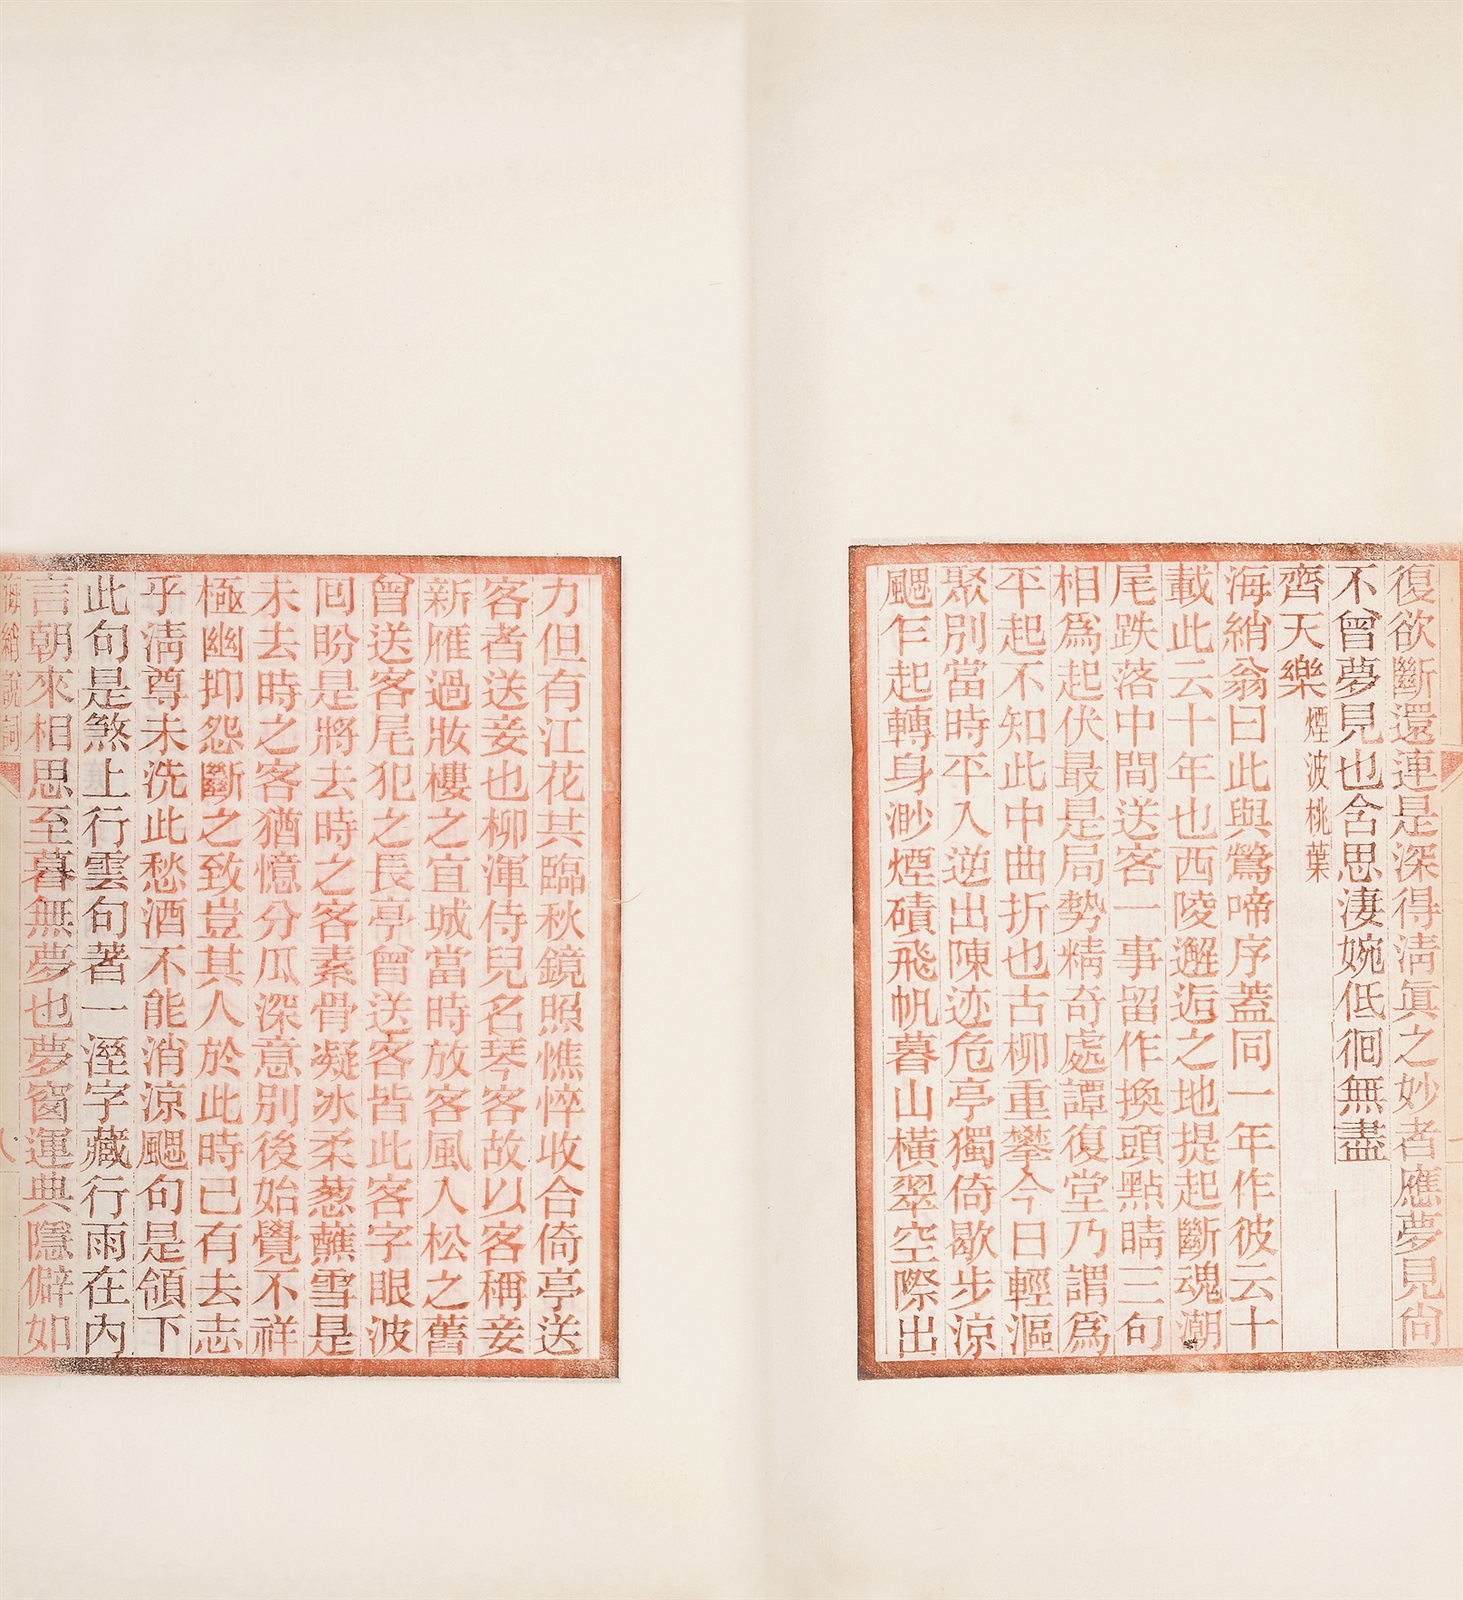 復欲斷還連是深得淸眞之妙者應夢見尙
不曾夢見也含思淒婉低徊無盡
齊天樂 煙波桃葉
海綃翁曰此與鶯啼序蓋同一年作彼云十
載此云十年也西陵邂逅之地提起斷魂潮
尾跌落中間送客一事留作換頭點睛三句
相爲起伏最是局勢精奇處譚復堂乃謂爲
平起不知此中曲折也古柳重攀今日輕漚
聚別當時平入逆出陳迹危亭獨倚歇步涼
颸乍起轉身渺煙磧飛帆暮山橫翠空際出
力但有江花共臨秋鏡照憔悴收合倚亭送
客者送妾也柳渾侍兒名琴客故以客稱妾
新雁過妝樓之宜城當時放客風入松之舊
曾送客尾犯之長亭曾送客皆此客字眼波
回盼是將去時之客素骨凝冰柔葱蘸雪是
未去時之客猶憶分瓜深意別後始覺不祥
極幽抑怨斷之致豈其人於此時已有去志
乎淸尊未洗此愁酒不能消涼颸句是領下
此句是煞上行雲句著一溼字藏行雨在內
言朝來相思至暮無夢也夢窗運典隱僻如
海綃說詞
八